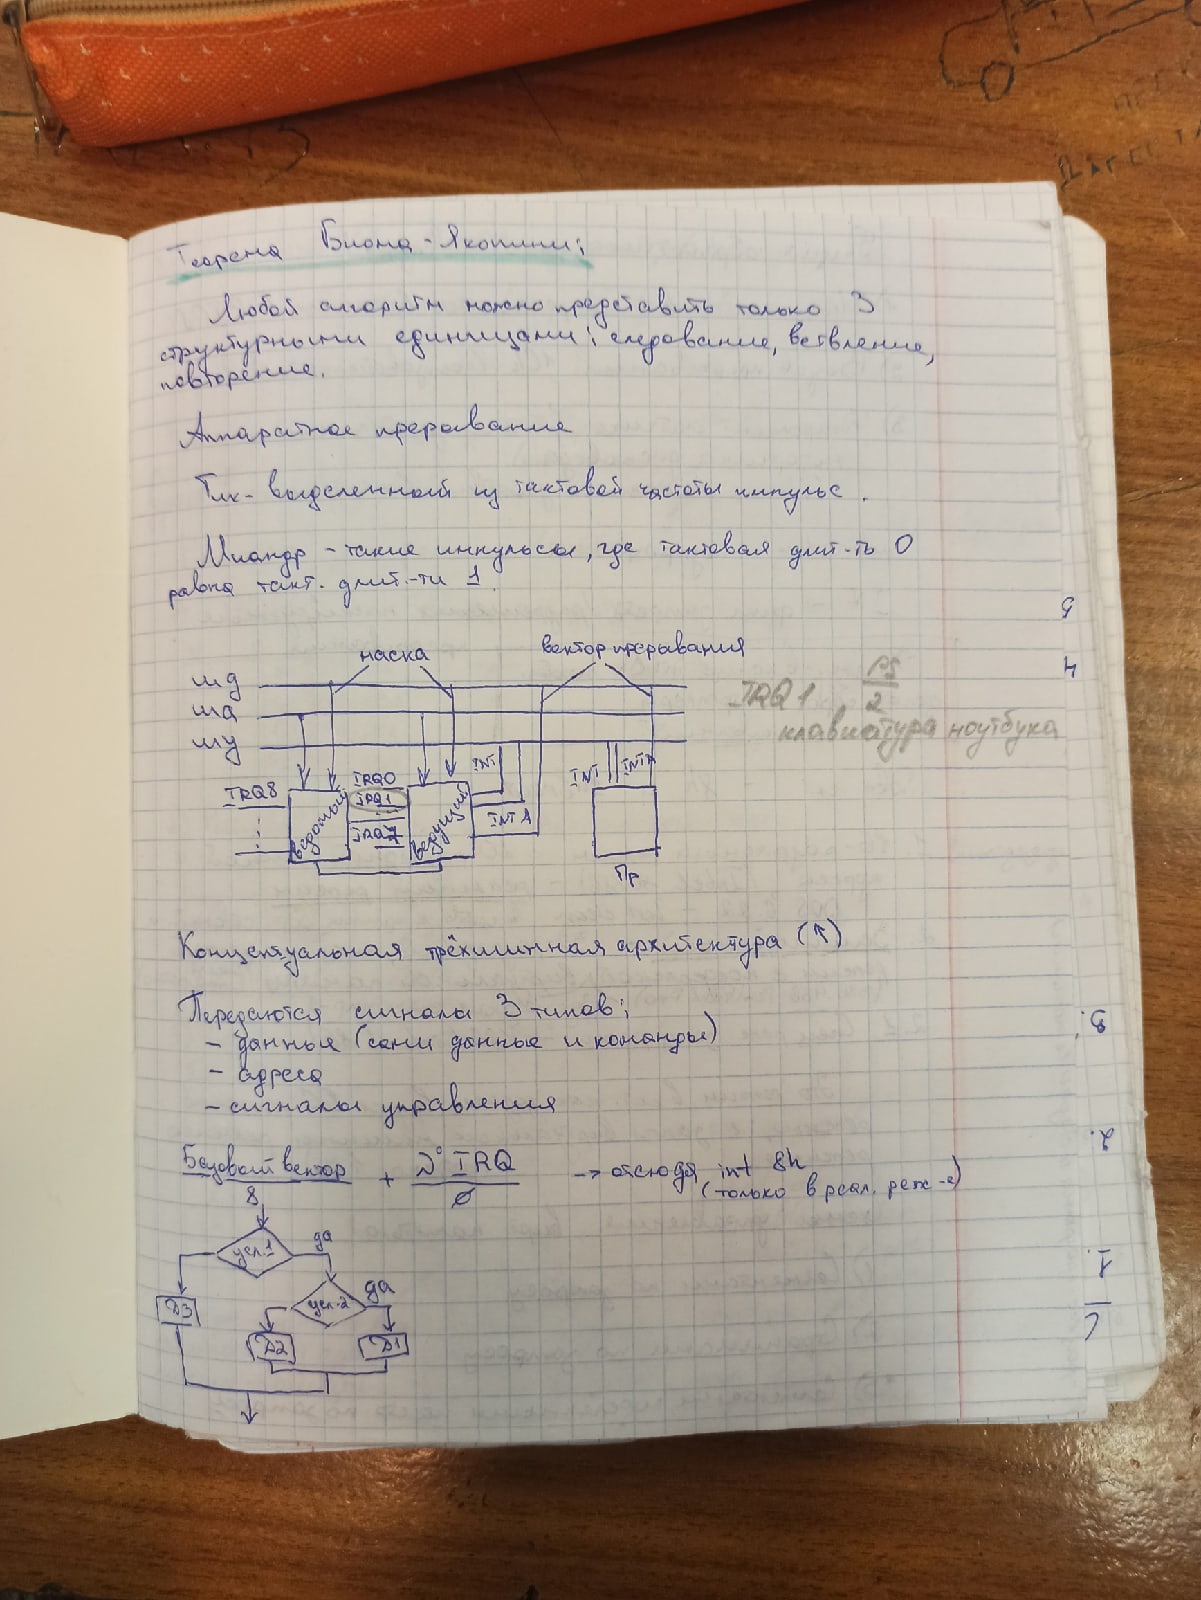 Теорема Биома-Якопини:
Любой алгоритм можно представить только 3
структурными единицами: следование, ветвление,
повторение.
Аппаратное прерывание
Тик - выделенный из тактовой частоты импульс.
Миандр - такие импульсы, где тактовая длит-ть 0
равна такт. длит.-ти 1
маска
вектор прерывания
шд
ша
шу
IRQ1 PS/2
клавиатура ноутбука
IRQ8
ведомый
IRQ0
IRQ1
IRQ7
ведущий
INT
INTA
INT
INTA
Пр
Концептуальная трёхшинная архитектура (↑)
Передаются сигналы 3 типов:
- данные (сами данные и команды)
- адреса
- сигналы управления
Базовый вектор / 8 + N° IRQ / 0 → отсюда int 8h
(только в реал. реж-е)
усл.1
да
усл.2
да
Д3
Д2
Д1
5
4
3.
2.
1.